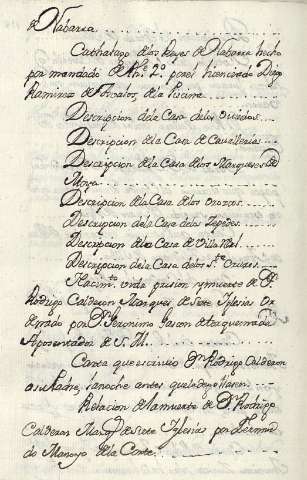 de Nabarra.
Cathalago de los Reyes de Nabarra hecho
por mandado de Ph.e 2.o por el licenciado Diego
Ramirez de Avalos, de la Piscina
Descripcion de la Casa de los Ossorios
Descripcion de la Casa de Cavallerias
Descripcion de la Casa de los Marqueses de
Moya
Descripcion de la Casa de los Orozcos
Descripcion de la Casa de los Zepedes
Descripcion de la Casa de Villa Real
Descripcion de la Casa de los
Nacim.to vida prision y muerte de D.
Rodrigo Calderon Marques de Siete Iglesias or
denado por D.n Geronimo Gascon de Torquemada
Aposentador de S. M.
Carta que escrivio D.n Rodrigo Calderon
a su Padre, la noche antes que le degollasen
Relacion de la muerte de D. Rodrigo
Calderon Marq.s de Siete Iglesias por
de la Corte